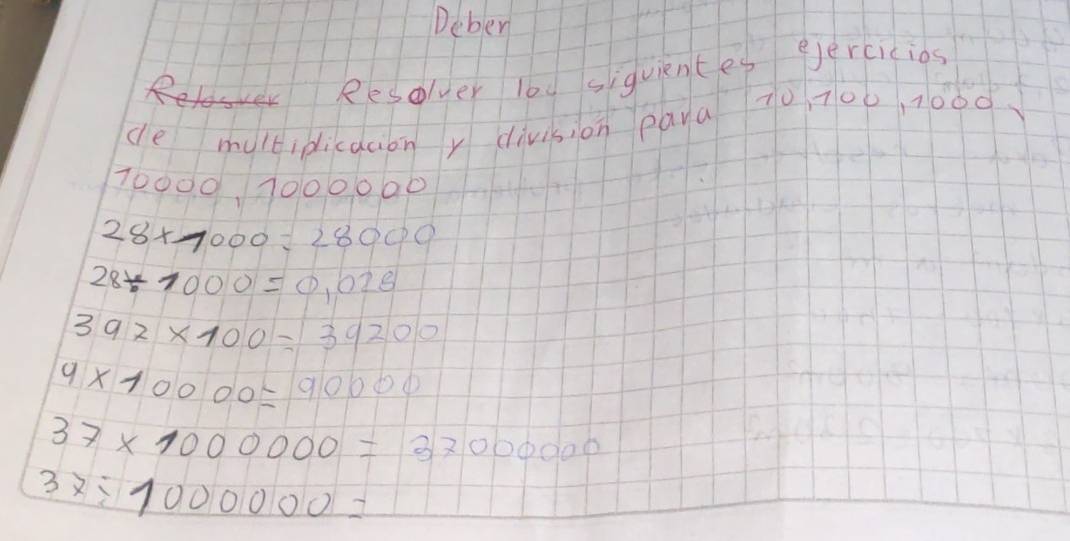 Deber
Relosver Resolver los siguientes ejercicios
de multiplicación y división para 10,100,1000,
10000, 1000000
28×1000=28000
28÷1000=0,028
392×100=39200
9×10000=90000
37×1000000=37000000
37÷1000000=